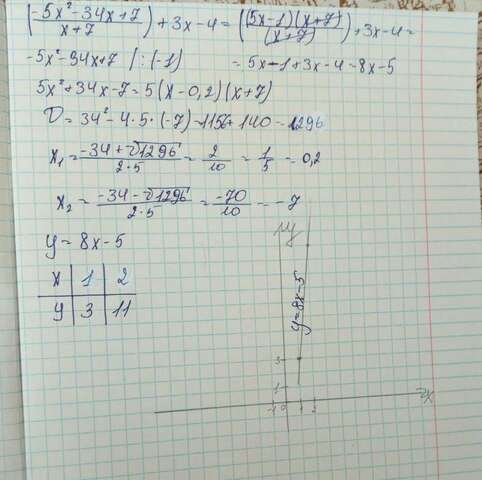 (-5x²-34x+7 / x+7) + 3x-4 = ((5x-1)(x+7) / (x+7)) + 3x-4 =
-5x²-34x+7 /:(-1) = 5x-1+3x-4=8x-5
5x²+34x-7=5(x-0,2)(x+7)
D=34²-4·5·(-7)=1156+140=1296
x₁ = -34+√1296 / 2·5 = 2/10 = 1/5 = 0,2
x₂ = -34-√1296 / 2·5 = -70/10 = -7
y=8x-5
x 1 2
y 3 11
y
y=8x-5
3
1
-1 0 1 2 x